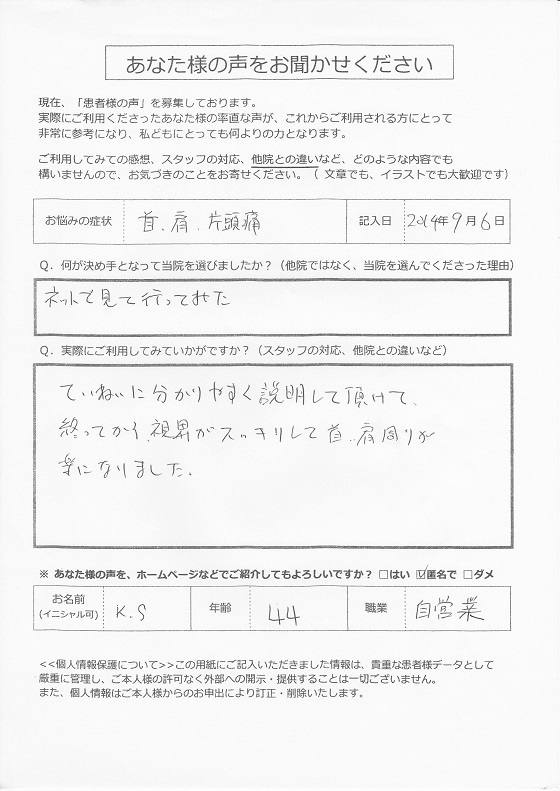 あなた様の声をお聞かせください
現在、「患者様の声」を募集しております。
実際にご利用くださったあなた様の率直な声が、これからご利用される方にとって
非常に参考になり、私どもにとっても何よりの力となります。
ご利用してみての感想、スタッフの対応、他院との違いなど、どのような内容でも
構いませんので、お気づきのことをお寄せください。（ 文章でも、イラストでも大歓迎です）
お悩みの症状 首、肩、片頭痛 記入日 2014年9月6日
Q．何が決め手となって当院を選びましたか？（他院ではなく、当院を選んでくださった理由）
ネットで見て行ってみた
Q．実際にご利用してみていかがですか？（スタッフの対応、他院との違いなど）
ていねいに分かりやすく説明して頂けて、
終ってから、視界がスッキリして首、肩周りが
楽になりました。
※ あなた様の声を、ホームページなどでご紹介してもよろしいですか？ □はい ☑匿名で □ダメ
お名前
(イニシャル可) K.S 年齢 44 職業 自営業
<<個人情報保護について>>この用紙にご記入いただきました情報は、貴重な患者様データとして
厳重に管理し、ご本人様の許可なく外部への開示・提供することは一切ございません。
また、個人情報はご本人様からのお申出により訂正・削除いたします。